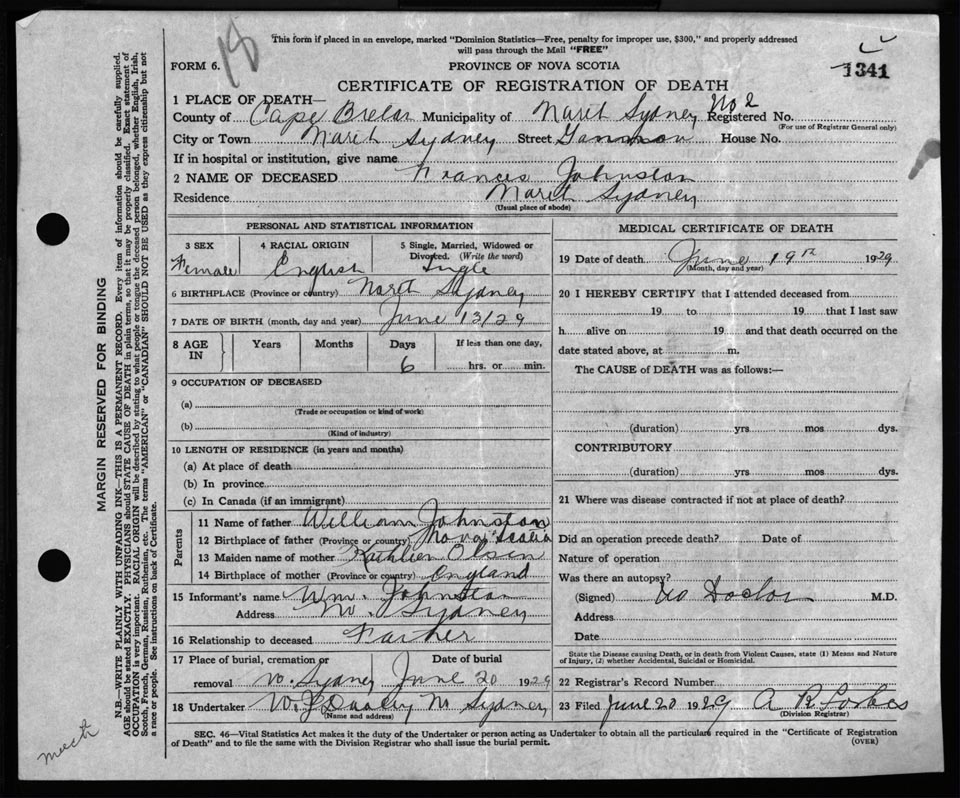 18
This form if placed in an envelope, marked "Dominion Statistics—Free, penalty for improper use, $300," and properly addressed
will pass through the Mail "FREE"
FORM 6.
PROVINCE OF NOVA SCOTIA
1341
CERTIFICATE OF REGISTRATION OF DEATH
1 PLACE OF DEATH—
County of Cape Breton Municipality of North Sydney No 2 Registered No.
(For use of Registrar General only)
City or Town North Sydney Street House No.
If in hospital or institution, give name
2 NAME OF DECEASED Frances Johnston
Residence North Sydney
(Usual place of abode)
PERSONAL AND STATISTICAL INFORMATION
3 SEX 4 RACIAL ORIGIN 5 Single, Married, Widowed or
Divorced. (Write the word)
Female English Single
6 BIRTHPLACE (Province or country) North Sydney
7 DATE OF BIRTH (month, day and year) June 13/29
8 AGE IN Years Months Days If less than one day,
6 hrs. or min.
9 OCCUPATION OF DECEASED
(a)
(Trade or occupation or kind of work)
(b)
(Kind of industry)
10 LENGTH OF RESIDENCE (in years and months)
(a) At place of death
(b) In province
(c) In Canada (if an immigrant)
Parents
11 Name of father William Johnston
12 Birthplace of father (Province or country) Nova Scotia
13 Maiden name of mother Kathleen Olsen
14 Birthplace of mother (Province or country) England
15 Informant's name Wm. Johnston
Address No. Sydney
16 Relationship to deceased Farther
17 Place of burial, cremation or Date of burial
removal No. Sydney June 20 1929
18 Undertaker N Sydney
(Name and address)
MEDICAL CERTIFICATE OF DEATH
19 Date of death June 19th 1929
(Month, day and year)
20 I HEREBY CERTIFY that I attended deceased from
19 to 19 that I last saw
h alive on 19 and that death occurred on the
date stated above, at m.
The CAUSE of DEATH was as follows:—
(duration) yrs mos dys.
CONTRIBUTORY
(duration) yrs. mos dys.
21 Where was disease contracted if not at place of death?
Did an operation precede death? Date of
Nature of operation
Was there an autopsy?
(Signed) No Doctor M.D.
Address
Date
State the Disease causing Death, or in death from Violent Causes, state (1) Means and Nature
of Injury, (2) whether Accidental, Suicidal or Homicidal.
22 Registrar's Record Number
23 Filed June 20 1929 A R Forbes
(Division Registrar)
SEC. 46—Vital Statistics Act makes it the duty of the Undertaker or person acting as Undertaker to obtain all the particulars required in the "Certificate of Registration
of Death" and to file the same with the Division Registrar who shall issue the burial permit.
(OVER)
MARGIN RESERVED FOR BINDING
N.B.—WRITE PLAINLY WITH UNFADING INK—THIS IS A PERMANENT RECORD. Every item of information should be carefully supplied.
AGE should be stated EXACTLY. PHYSICIANS should STATE CAUSE OF DEATH in plain terms, so that it may be properly classified. Exact statement of
OCCUPATION is very important. RACIAL ORIGIN will be described by stating to what people or tongue the deceased person belonged, whether English, Irish,
Scotch, French, German, Russian, Ruthenian, etc. The terms "AMERICAN" or "CANADIAN" SHOULD NOT BE USED as they express citizenship but not
a race or people. See instructions on back of Certificate.